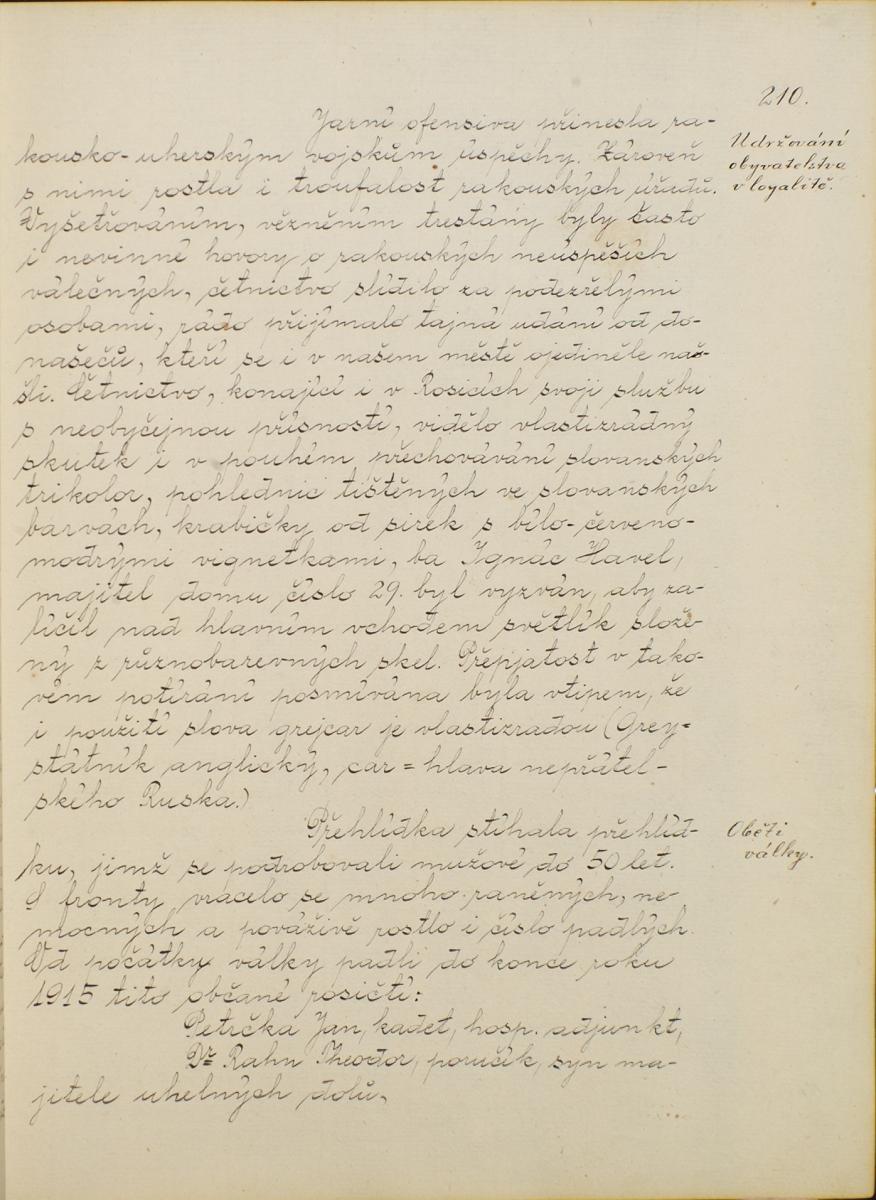 210.
Udržování
obyvatelstva
v loyalitě.
Jarní ofensiva přinesla ra-
kousko-uherským vojskům úspěchy. Zároveň
s nimi rostla i troufalost rakouských úřadů.
Vyšetřováním, vězněním trestány byly často
i nevinné hovory o rakouských neúspěších
válečných, četnictvo slídilo za podezřelými
osobami, rádo přijímalo tajná udání od do-
našečů, kteří se i v našem městě ojediněle na-
šli. Četnictvo, konající i v Rosicích svoji službu
s neobyčejnou přísností, vidělo vlastizrádný
skutek i v pouhém přechovávání slovanských
trikolor, pohlednic tištěných ve slovanských
barvách, krabičky od sirek s bílo-červeno-
modrými vignetkami, ba Ignác Havel,
majitel domu číslo 29. byl vyzván, aby za-
líčil nad hlavním vchodem světlík slože-
ný z různobarevných skel. Přepjatost v tako-
vém potírání posmívána byla vtipem, že
i použití slova grejcar je vlastizradou (Grey=
státník anglický, car = hlava nepřátel-
ského Ruska.)
Oběti
války.
Přehlídka stíhala přehlíd-
ku, jimž se podrobovali mužové do 50 let.
S fronty vracelo se mnoho raněných, ne-
mocných a povážlivě rostlo i číslo padlých.
Od počátku války padli do konce roku
1915 tito občané rosičtí:
Petrčka Jan, kadet, hosp. adjunkt,
Dr. Rahn Theodor, poručík, syn ma-
jitele uhelných dolů,